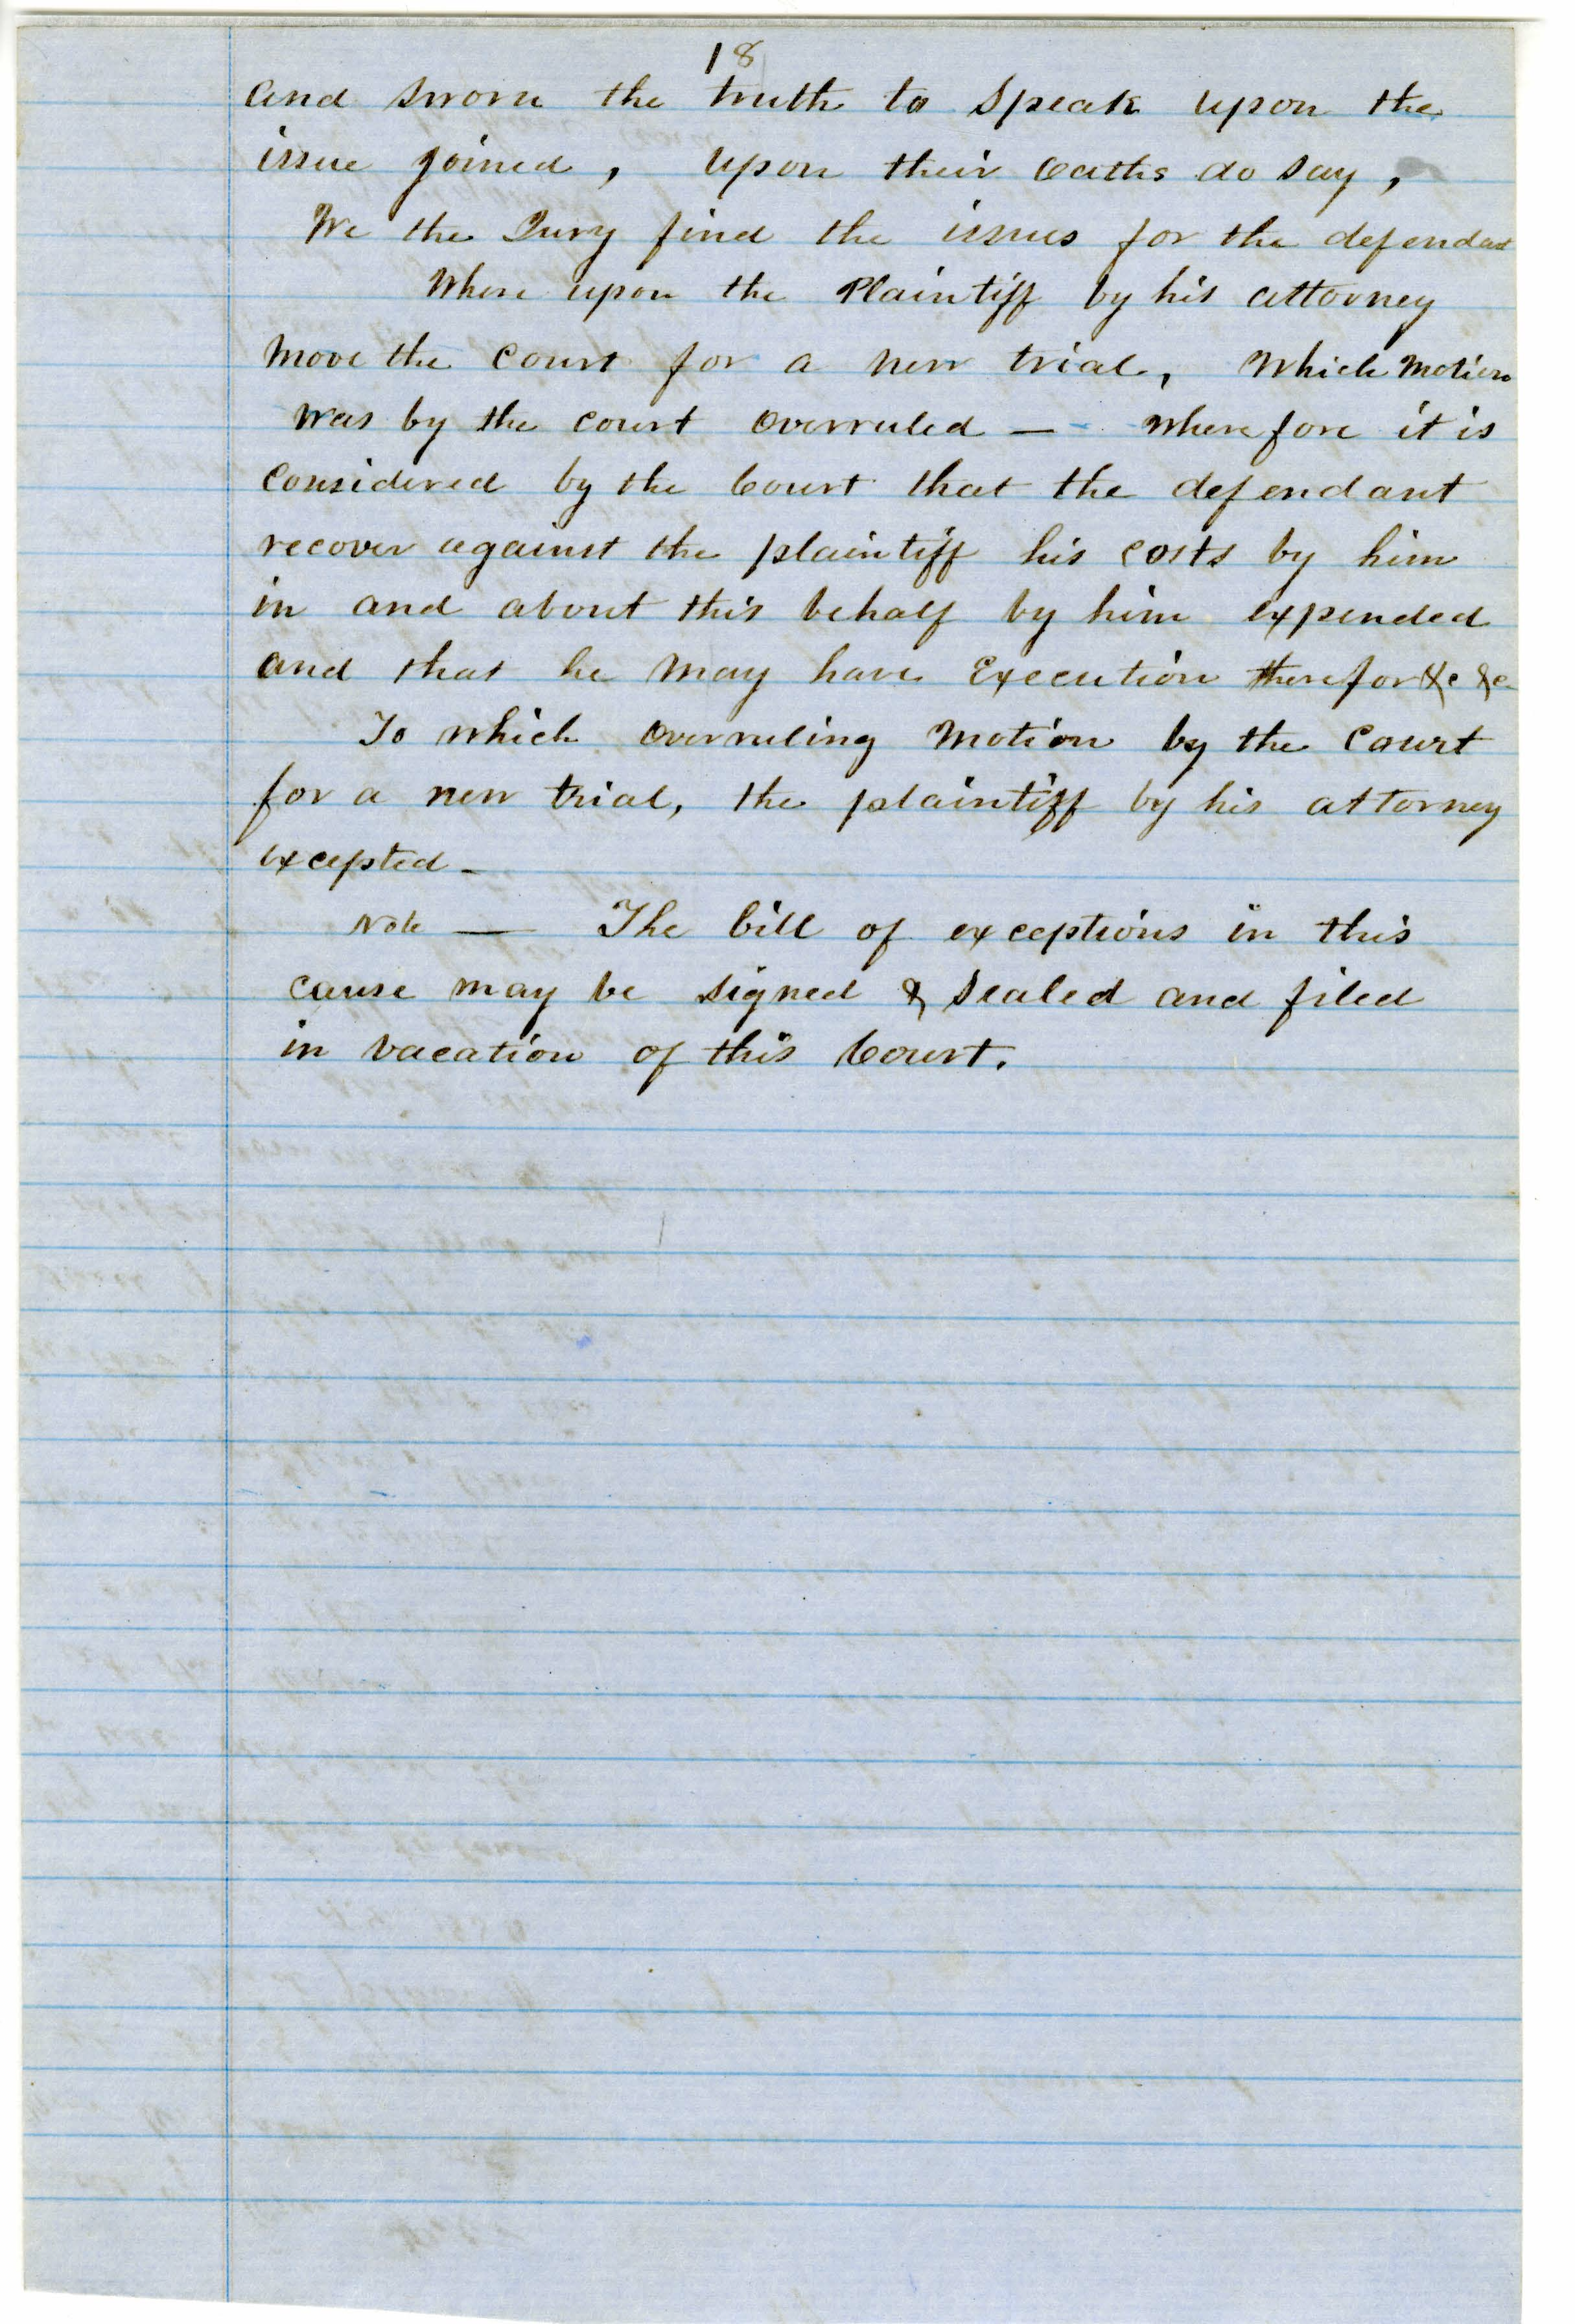 18
and sworn the truth to speak upon the
issue joined, upon their oaths do say,
We the Jury find the issues for the defendant
Where upon the Plaintiff by his attorney
Move the Court for a new trial, Which Motion
Was by the court overruled — Wherefore it is
Considered by the Court that the defendant
recover against the plaintiff his costs by him
in and about this behalf by him expended
and that he may have Execution therefor &c &c
To which overruling Motion by the Court
for a new trial, the plaintiff by his attorney
excepted —
Note — The bill of exceptions in this
cause may be signed & sealed and filed
in vacation of this Court.